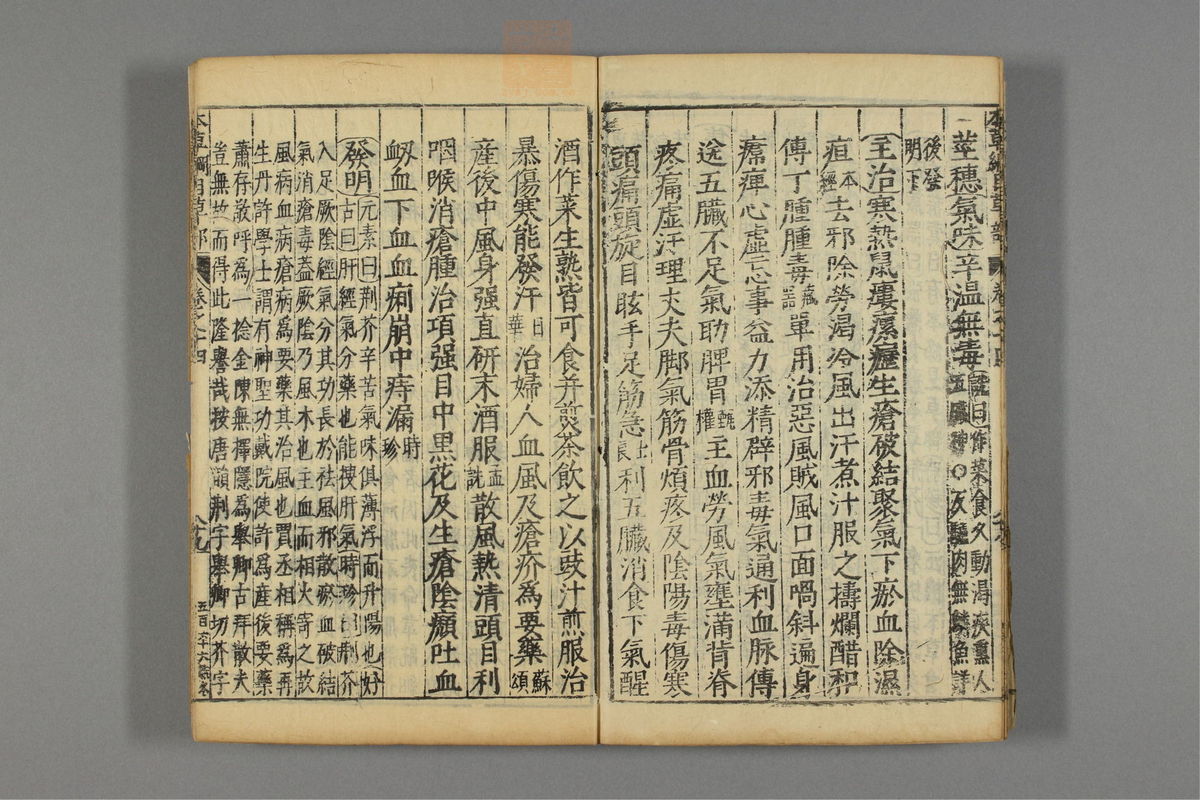 莖穗氣味辛溫無毒詵曰作菜食久動渴疾熏人
五臟神○反驢肉無鱗魚詳
後發
明下
主治寒熱鼠瘻瘰癧生瘡破結聚氣下瘀血除濕
疸本經去邪除勞渴冷風出汗煮汁服之擣爛醋和
傅丁腫腫毒藏器單用治惡風賊風口面喎斜遍身
𤸷痺心虛忘事益力添精辟邪毒氣通利血脉傳
送五臟不足氣助脾胃甄權主血勞風氣壅滿背脊
疼痛虛汗理丈夫脚氣筋骨煩疼及陰陽毒傷寒
頭痛頭旋目眩手足筋急士良利五臟消食下氣醒
酒作菜生熟皆可食并煎茶飲之以豉汁煎服治
暴傷寒能發汗日華治婦人血風及瘡疥爲要藥蘇頌
産後中風身强直研末酒服孟詵散風熱清頭目利
咽喉消瘡腫治項强目中黑花及生瘡陰㿗吐血
衂血下血血痢崩中痔漏時珍
發明元素曰荆芥辛苦氣味俱薄浮而升陽也好
古曰肝經氣分藥也能搜肝氣時珍曰荆芥
入足厥陰經氣分其功長於祛風邪散瘀血破結
氣消瘡毒蓋厥陰乃風木也主血而相火寄之故
風病血病瘡病爲要藥其治風也賈丞相稱爲再
生丹許學士謂有神聖功戴院使許爲産後要藥
蕭存敬呼爲一捻金陳無擇隱爲舉卿古拜散夫
豈無故而得此隆譽哉按唐韻荆字舉卿切芥字
本草綱目草部